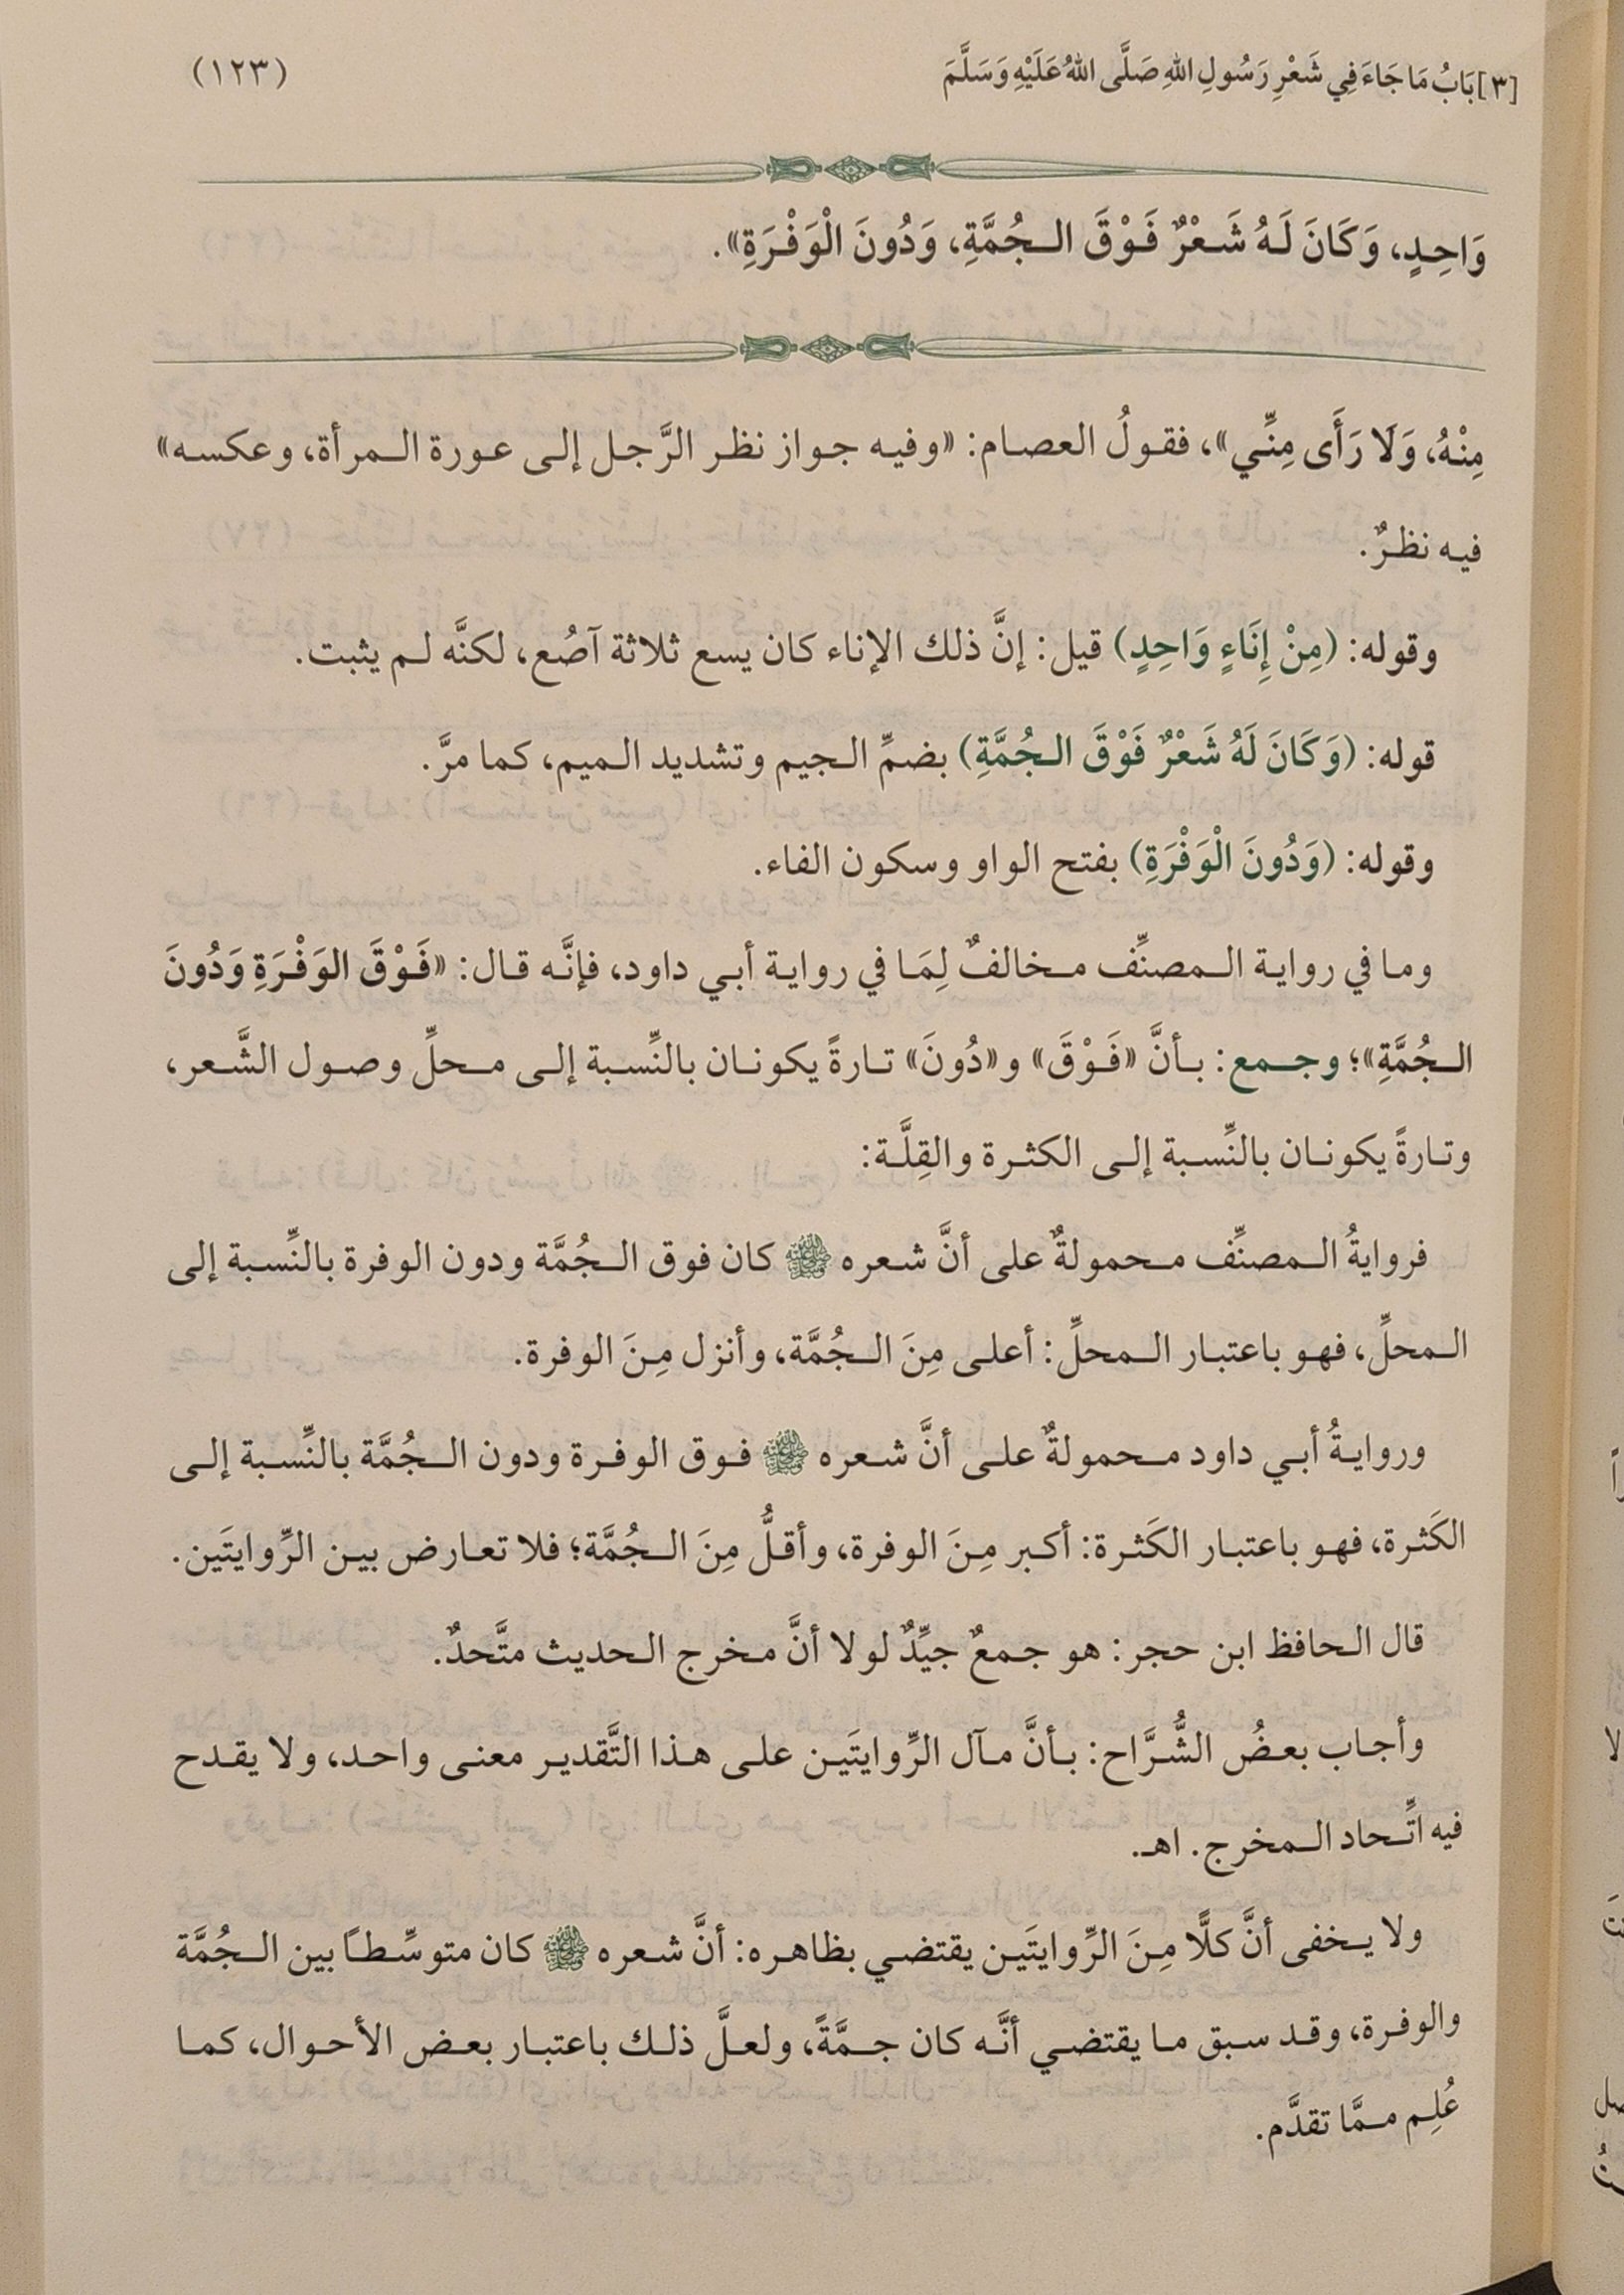 [٣] بَابُ مَا جَاءَ فِي شَعْرِ رَسُولِ اللهِ صَلَّى اللهُ عَلَيْهِ وَسَلَّمَ
(١٢٣)
وَاحِدٍ، وَكَانَ لَهُ شَعْرٌ فَوْقَ الجُمَّةِ، وَدُونَ الْوَفْرَةِ».
مِنْهُ، وَلَا رَأَى مِنِّي»، فقولُ العصام: «وفيه جواز نظر الرَّجل إلى عورة المرأة، وعكسه»
فيه نظرٌ.
وقوله: (مِنْ إِنَاءٍ وَاحِدٍ) قيل: إنَّ ذلك الإناء كان يسع ثلاثة آصُع، لكنَّه لم يثبت.
قوله: (وَكَانَ لَهُ شَعْرٌ فَوْقَ الجُمَّةِ) بضمِّ الجيم وتشديد الميم، كما مرَّ.
وقوله: (وَدُونَ الْوَفْرَةِ) بفتح الواو وسكون الفاء.
وما في رواية المصنِّف مخالفٌ لِمَا في رواية أبي داود، فإنَّه قال: «فَوْقَ الوَفْرَةِ وَدُونَ
الجُمَّةِ»؛ وجمع: بأنَّ «فَوْقَ» و«دُونَ» تارةً يكونان بالنِّسبة إلى محلِّ وصول الشَّعر،
وتارةً يكونان بالنِّسبة إلى الكثرة والقِلَّة:
فروايةُ المصنِّف محمولةٌ على أنَّ شعره ﷺ كان فوق الجُمَّة ودون الوفرة بالنِّسبة إلى
المحلِّ، فهو باعتبار المحلِّ: أعلى مِنَ الجُمَّة، وأنزل مِنَ الوفرة.
وروايةُ أبي داود محمولةٌ على أنَّ شعره ﷺ فوق الوفرة ودون الجُمَّة بالنِّسبة إلى
الكَثرة، فهو باعتبار الكَثرة: أكبر مِنَ الوفرة، وأقلُّ مِنَ الجُمَّة؛ فلا تعارض بين الرِّوايتَين.
قال الحافظ ابن حجر: هو جمعٌ جيِّدٌ لولا أنَّ مخرج الحديث متَّحدٌ.
وأجاب بعضُ الشُّرَّاح: بأنَّ مآل الرِّوايتَين على هذا التَّقدير معنى واحد، ولا يقدح
فيه اتِّحاد المخرج. اهـ.
ولا يخفى أنَّ كلًّا مِنَ الرِّوايتَين يقتضي بظاهره: أنَّ شعره ﷺ كان متوسِّطاً بين الجُمَّة
والوفرة، وقد سبق ما يقتضي أنَّه كان جمَّةً، ولعلَّ ذلك باعتبار بعض الأحوال، كما
عُلِم ممَّا تقدَّم.